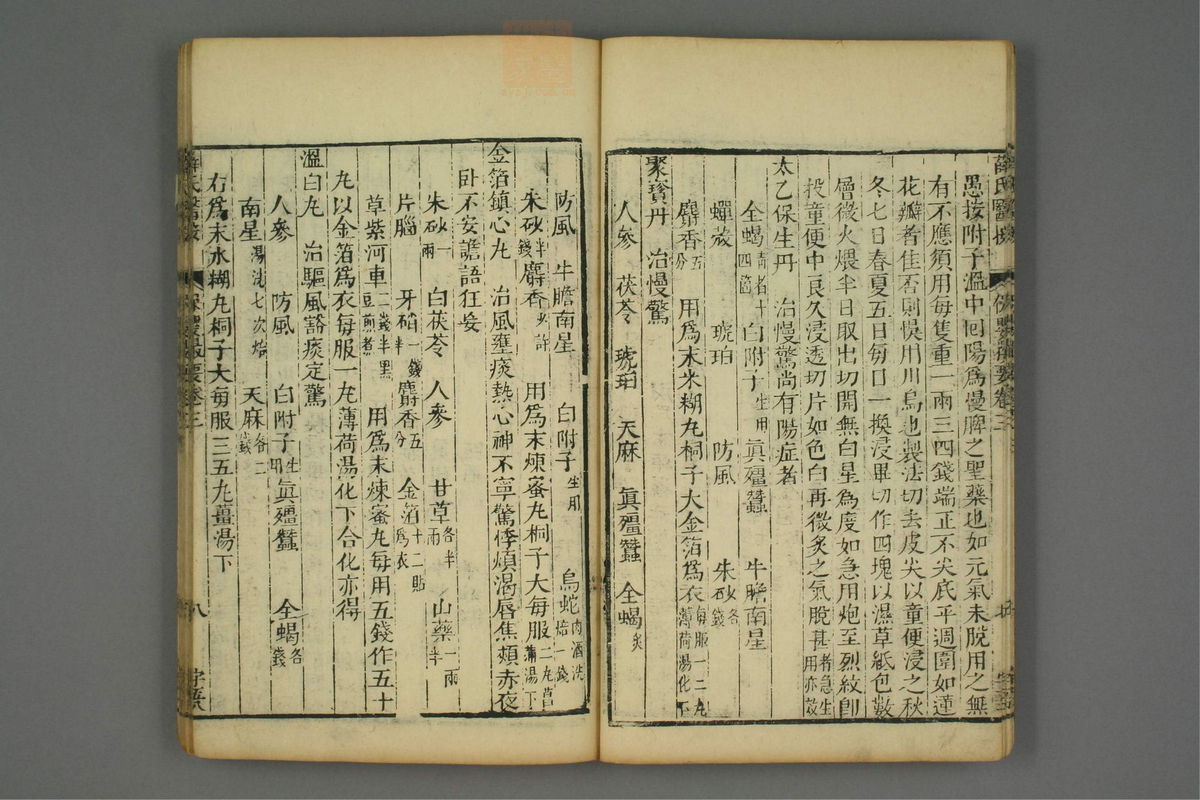 愚按附子溫中回陽爲慢脾之聖藥也如元氣未脫用之無
有不應須用每隻重一兩三四錢端正不尖底平週圍如蓮
花瓣者佳否則悞用川烏也製法切去皮尖以童便浸之秋
冬七日春夏五日每日一換浸畢切作四塊以濕草紙包數
層微火煨半日取出切開無白星爲度如急用炮至烈紋卽
投童便中良久浸透切片如色白再微炙之氣脫甚者急生用亦效
太乙保生丹 治慢驚尚有陽症者
全蝎青者十四箇 白附子生用 眞殭蠶 牛膽南星
蟬蛻 琥珀 防風 朱砂各錢
麝香五分 用爲末米糊丸桐子大金箔爲衣每服一二丸薄荷湯化下
聚寶丹 治慢驚
人參 茯苓 琥珀 天麻 眞殭蠶 全蝎炙
防風 牛膽南星 白附子生用 烏蛇肉酒洗焙一錢
朱砂半錢 麝香少許 用爲末煉蜜丸桐子大每服二丸菖蒲湯下
金箔鎮心丸 治風壅痰熱心神不寧驚悸煩渴唇焦頰赤夜
卧不安譫語狂妄
朱砂一兩 白茯苓 人參 甘草各半兩 山藥一兩半
片腦 牙硝一錢半 麝香五分 金箔十二貼爲衣
草紫河車二錢半黑豆煎煮 用爲末煉蜜丸每用五錢作五十
丸以金箔爲衣每服一丸薄荷湯化下含化亦得
溫白丸 治驅風豁痰定驚
人參 防風 白附子生用 眞殭蠶 全蝎各錢
南星湯洗七次焙 天麻各二錢
右爲末水糊丸桐子大每服三五丸薑湯下
八